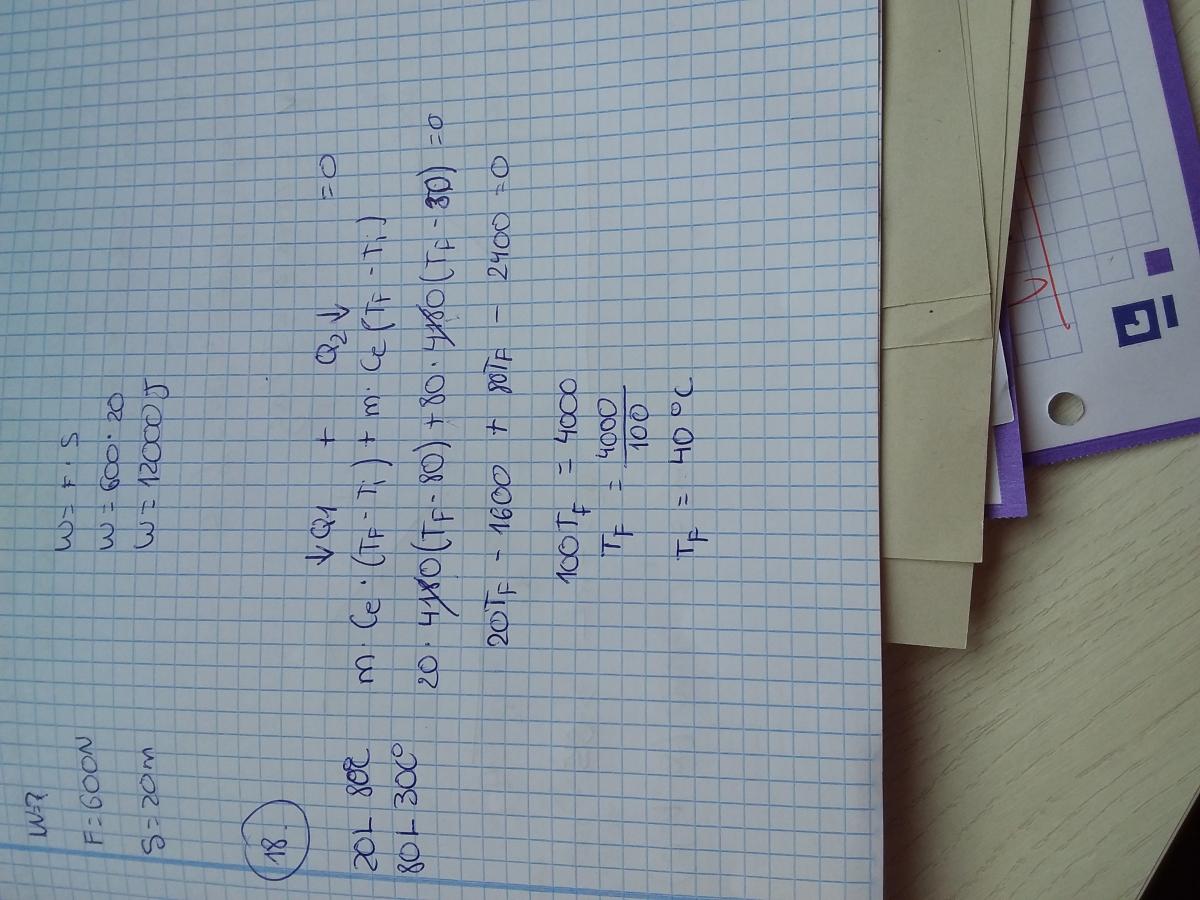 W=?
F=600N
S=20m
W=F·S
W=600·20
W=12000J
18.
20L 80ºC
80L 30Cº
↓Q1 + Q2↓ =0
m·Ce·(TF-Ti)+m·Ce(TF-Ti)
20·4180(TF-80)+80·4180(TF-30)=0
20TF-1600 + 80TF-2400=0
100TF=4000
TF=4000/100
TF=40ºC